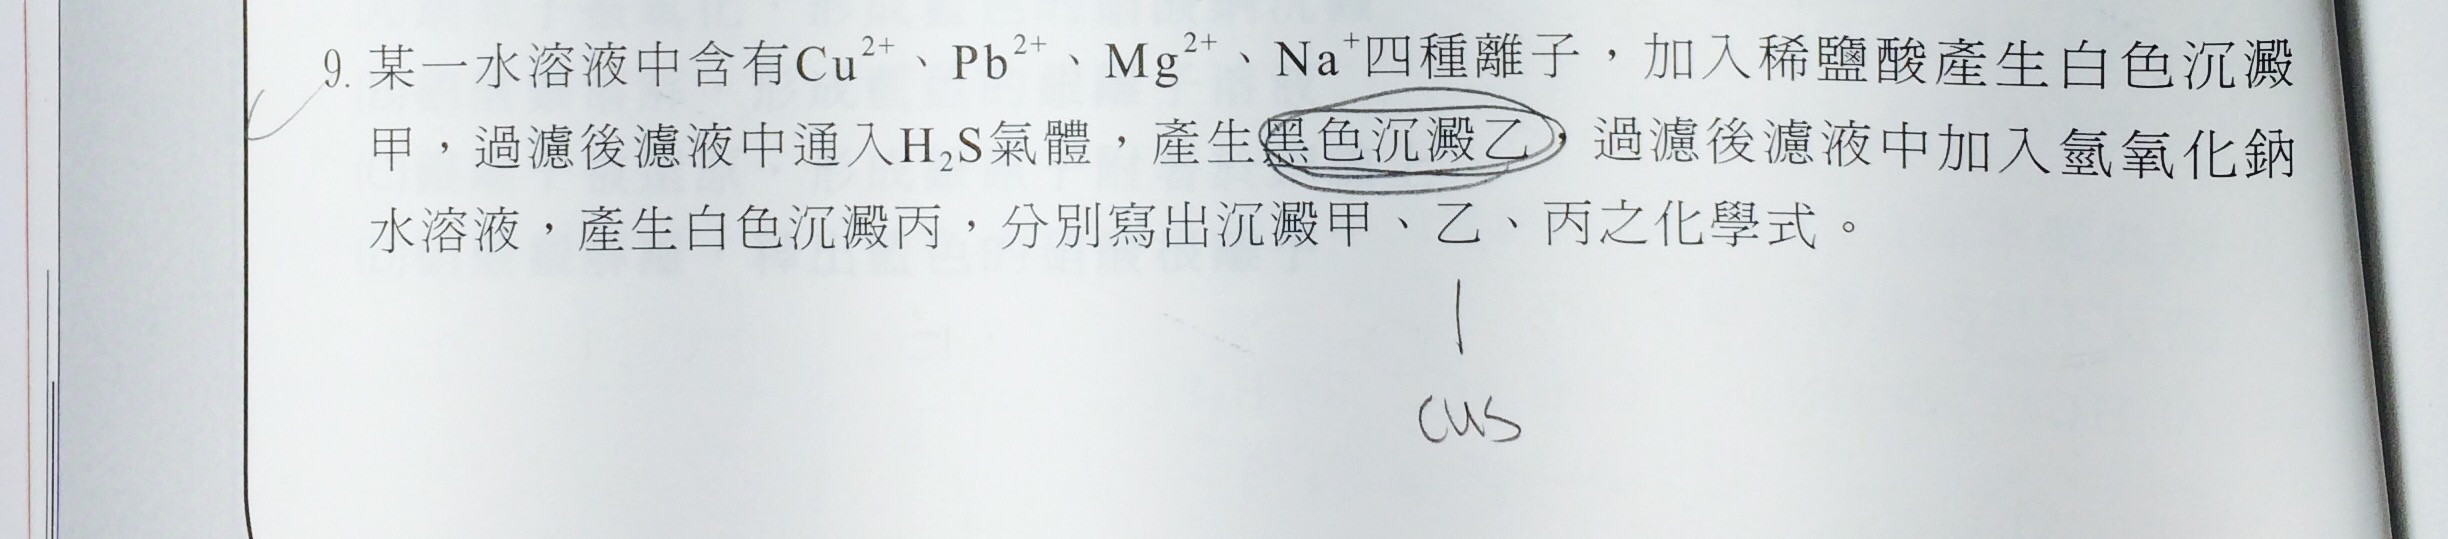 9. 某一水溶液中含有Cu²⁺、Pb²⁺、Mg²⁺、Na⁺四種離子，加入稀鹽酸產生白色沉澱
甲，過濾後濾液中通入H₂S氣體，產生黑色沉澱乙，過濾後濾液中加入氫氧化鈉
水溶液，產生白色沉澱丙，分別寫出沉澱甲、乙、丙之化學式。
cus